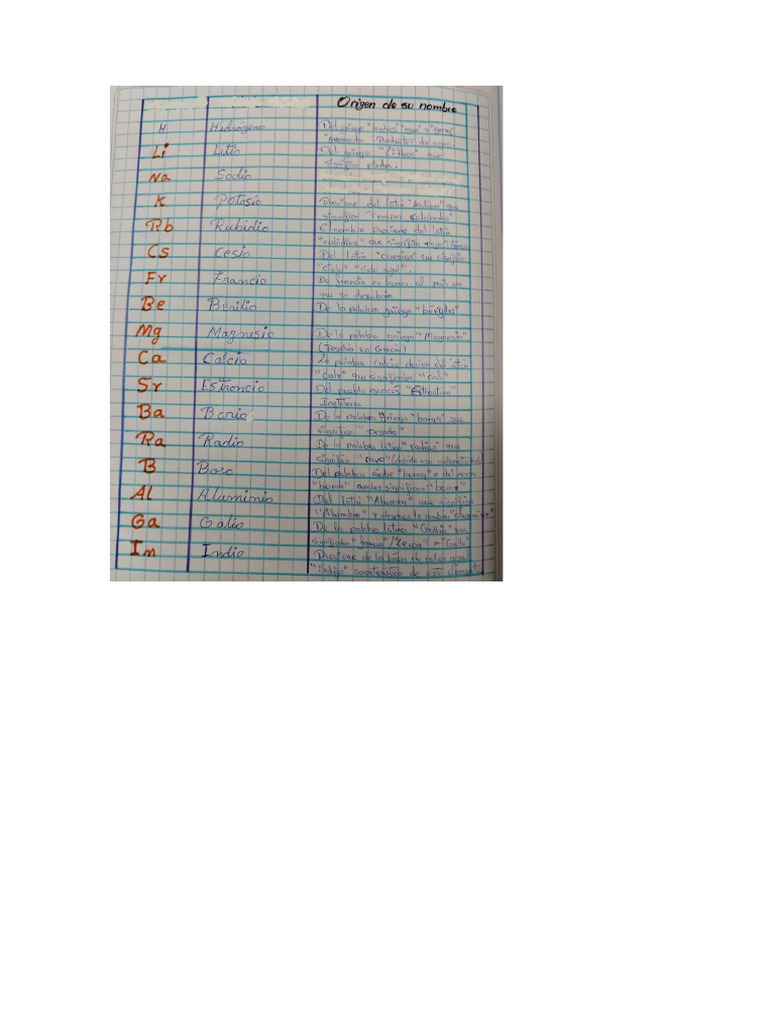 Origen de su nombre
H Hidrógeno Del griego "hydros" "agua" y "genes"
"engendrado" Productor de agua.
Li Litio Del griego "Lithos" que
significa piedra.
Na Sodio
K Potasio Proviene del latín que
significa "cenizas calcinadas"
Rb Rubidio El nombre proviene del latín
"rubidius" que significa rojo
Cs Cesio Del Latín "caesius" que significa
"cielo" "cielo azul".
Fr Francio De francia en honor al país en
que se descubrió
Be Berilio De la palabra griego "béryllos"
Mg Magnesio De la palabra griego
(Tesalia en Grecia)
Ca Calcio La palabra calcio deriva del latín
"calx" que significaba "cal"
Sr Estroncio Del pueblo escocés "Estrontian"
Inglaterra
Ba Bario De la palabra griego "barys" que
significa "pesado"
Ra Radio De la palabra latina "radius" que
significa "rayo"
B Boro Del palabra árabe "buraq" o del
"burah" ambas significan "borax"
Al Aluminio Del latín "Alumen" que significa
"Alumbre" y después le nombre "aluminion"
Ga Galio De la palabra latina "Gallia" que
"Gallo"
In Indio Proviene de la línea de color azul
"índigo" característico de este elemento